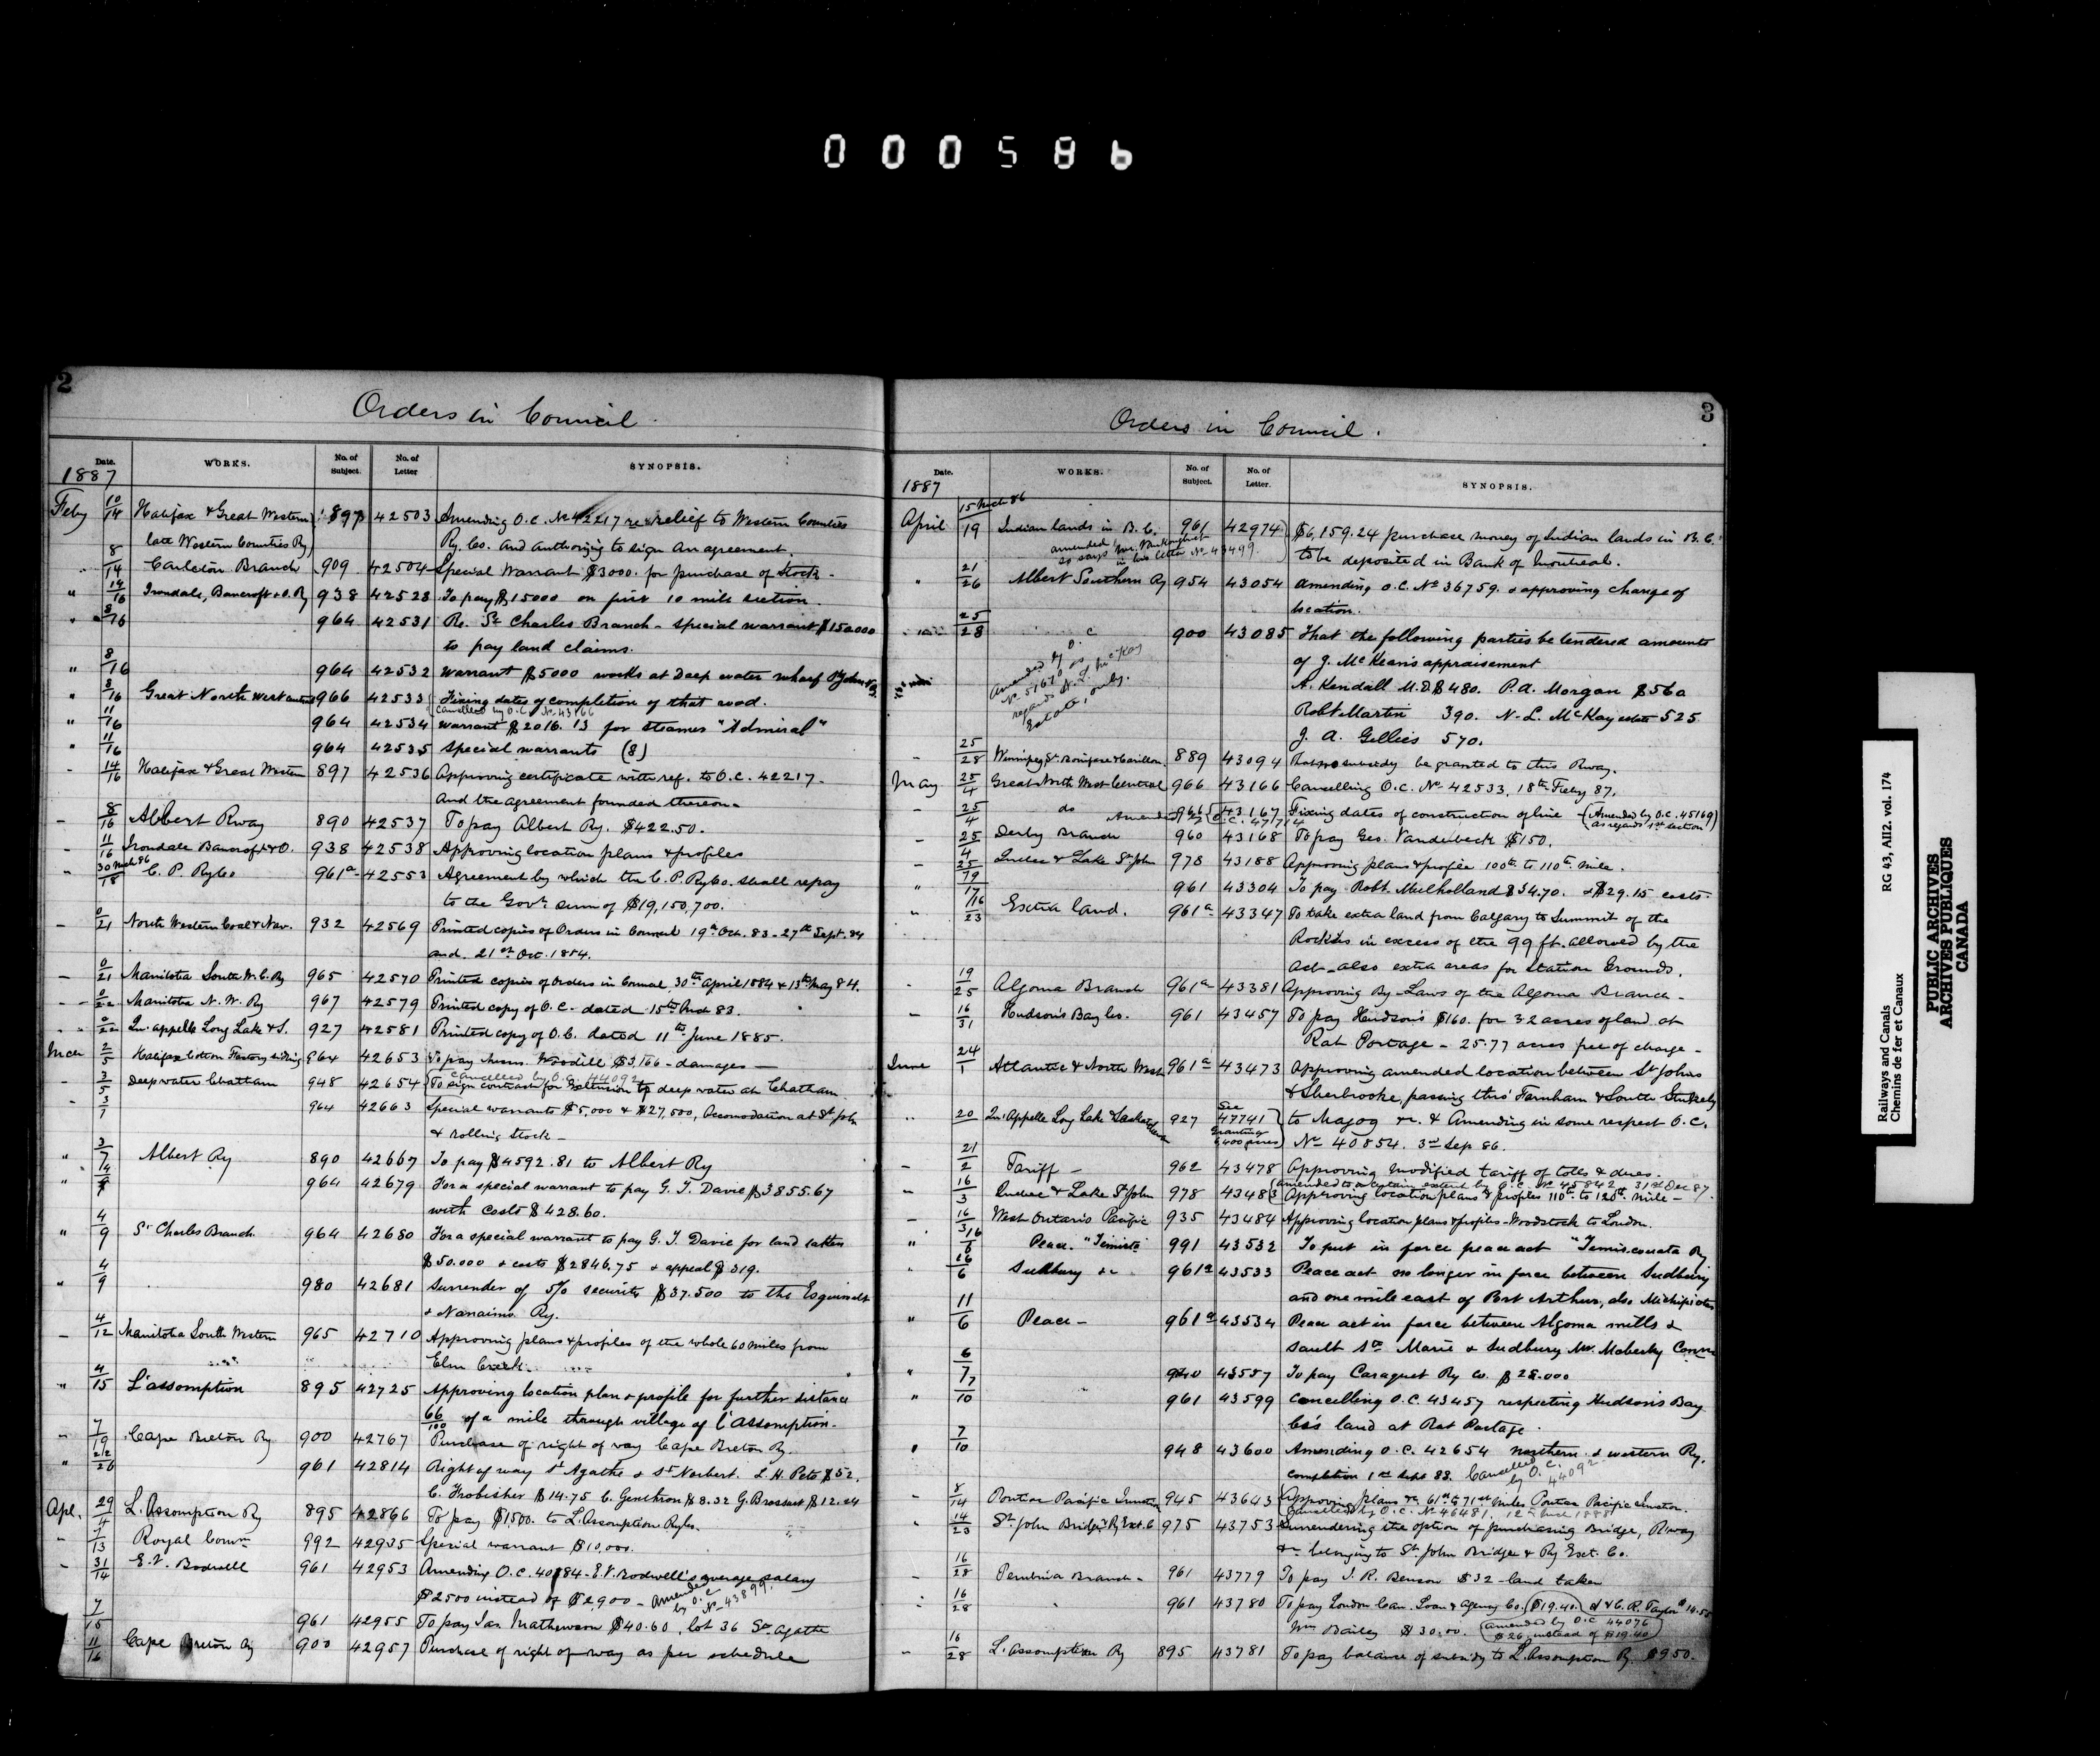 000586
2
Orders in Council
Date. WORKS. No. of Subject. No. of Letter SYNOPSIS.
1887
Feby 10/14 Halifax & Great Western 897 42503 Amending O.C. No 42217 re relief to Western Counties
late Western Counties Ry, Ry. Co. and authorizing to sign an agreement.
8/14 Carleton Branch 909 42504 Special Warrant $3000. for purchase of stock.
" 14/16 Irondale, Bancroft & O. Ry 938 42528 To pay $15000 on first 10 mile section.
" 8/16 964 42531 Re. St Charles Branch - special warrant $150000
to pay land claims.
" 8/16 964 42532 Warrant $5000 works at Deep water wharf St John N.B.
" 8/16 Great North West Central 966 42533 Fixing dates of completion of that road.
Cancelled by O.C. No. 43166
" 11/16 964 42534 Warrant $2016.13 for steamer "Admiral"
" 11/16 964 42535 Special warrants (8)
- 14/16 Halifax & Great Western 897 42536 Approving certificate with ref. to O.C. 42217.
and the agreement founded thereon.
- 8/16 Albert Rway 890 42537 To pay Albert Ry. $422.50.
- 11/16 Irondale Bancroft & O. 938 42538 Approving location plans & profiles
" 30 Mch 86/18 C. P. Ry Co 961a 42553 Agreement by which the C. P. Ry Co. shall repay
to the Govt sum of $19,150,700.
- 0/21 North Western Coal & Nav. 932 42569 Printed copies of Orders in Council 19th Oct. 83 - 27th Sept. 84
and 21st Oct. 1884.
- 0/21 Manitoba South W. C. Ry 965 42570 Printed copies of Orders in Council 30th April 1884 & 13th May 84.
- 0/22 Manitoba N. W. Ry 967 42579 Printed copy of O.C. dated 15th 83.
0/22 Qu'appelle Long Lake & S. 927 42581 Printed copy of O.C. dated 11th June 1885.
Mch 2/5 Halifax Cotton Factory siding 864 42653 To pay Woodill $3,166 - damages -
Cancelled by O.C. 44092
- 3/5 Deep water Chatham 948 42654 To sign contract for Extension to deep water at Chatham.
- 3/7 964 42663 Special warrants $5,000 & $27,500, Accomodation at St John
& rolling stock -
" 3/7 Albert Ry 890 42667 To pay $4592.81 to Albert Ry
" 4/9 964 42679 For a special warrant to pay G. T. Davie $3855.67
with costs $428.60.
" 4/9 St Charles Branch 964 42680 For a special warrant to pay G. T. Davie for land taken
$50.000 & costs $2846.75 & appeal $319.
" 4/9 980 42681 Surrender of 5% security $37.500 to the Esquimalt
& Nanaimo Ry.
- 4/12 Manitoba South Western 965 42710 Approving plans & profiles of the whole 60 miles from
Elm Creek.
" 4/15 L'assomption 895 42725 Approving location plan & profile for further distance
66/100 of a mile through village of l'Assomption.
" 7/19 Cape Breton Ry 900 42767 Purchase of right of way Cape Breton Ry.
" 212/26 961 42814 Right of way St Agathe & St Norbert. L. H. Pete $52.
C. Frobisher $14.75 C. Genthron $8.32 G. Brossart $12.24
Apl. 29/4 L'Assomption Ry 895 42866 To pay $1500. to L'Assomption Ry Co.
- 7/13 Royal Comn 992 42935 Special warrant $10,000.
- 31/14 E. V. Bodwell 961 42953 Amending O.C. 40184 - E. V. Bodwell's average salary
$2500 instead of $2,900 - Amended by O.C. No 43899.
7/15 961 42955 To pay Jas. Mathewson $40.60, lot 36 St Agathe
11/16 Cape Breton Ry 900 42957 Purchase of right of way as per schedule
3
Orders in Council.
Date. WORKS. No. of Subject. No. of Letter. SYNOPSIS.
1887
15 Mch 86
April 19 Indian lands in B.C. 961 42974 $6,159.24 purchase money of Indian lands in B.C.
amended so says Mr. Vankoughnet in his letter No 43499. to be deposited in Bank of Montreal.
" 21/26 Albert Southern Ry 954 43054 Amending O.C. No 36759. & approving change of
location.
25/28 900 43085 That the following parties be tendered amounts
of J. McKean's appraisement
Amended by O.C. No 51670 as regards N. L. McKay Estate, only.
A. Kendall M.D. $480. P. A. Morgan $560
Robt Martin 390. N. L. McKay estate 525
J. A. Gillies 570.
25/28 Winnipeg St. Boniface & Carillon 889 43094 That no subsidy be granted to this Rway.
May 25/4 Great North West Central 966 43166 Cancelling O.C. No. 42533, 18th Feby 87.
- 25/4 do 966 43167 Fixing dates of construction of line - (Amended by O.C. 45169
Amended O.C. 47714 as regards 1st section)
- 25/4 Derby Branch 960 43168 To pay Geo. Vanderbeck $150.
- 25/19 Quebec & Lake St John 978 43188 Approving plans & profile 100th to 110th mile.
" 17/16 961 43304 To pay Robt. Mulholland $54.70. & $29.15 costs.
" 23 Extra land. 961a 43347 To take extra land from Calgary to Summit of the
Rockies in excess of the 99 ft. allowed by the
Act - also extra areas for Station Grounds.
19/25 Algoma Branch 961a 43381 Approving By-Laws of the Algoma Branch -
- 16/31 Hudson's Bay Co. 961 43457 To pay Hudson's $160. for 32 acres of land at
Rat Portage - 25.77 acres free of charge -
June 24/1 Atlantic & North West 961a 43473 Approving amended location between St Johns
& Sherbrooke, passing thro' Farnham & South Stukely
" 20 Qu'Appelle Long Lake & Saskatchewan 927 See 47741 granting 6400 acres to Magog &c. & Amending in some respect O.C.
No 40854. 3rd Sep 86.
- 21/2 Tariff - 962 43478 Approving modified tariff of tolls & dues.
(amended to a certain extent by O.C. No 45842 - 31st Dec 87.
- 16/3 Quebec & Lake St John 978 43483 Approving location plans & profiles 110th to 120th mile -
- 16/3 West Ontario Pacific 935 43484 Approving location plans & profiles - Woodstock to London.
" 16/6 Peace. "Temista 991 43532 To put in force peace act "Temiscouata Ry
26/6 Sudbury &c 961a 43533 Peace act no longer in force between Sudbury
and one mile east of Port Arthur, also Michipicoten
" 11/6 Peace - 961a 43534 Peace act in force between Algoma mills &
Sault Ste Marie & Sudbury Mr. Moberly Comr
" 6/7 940 43557 To pay Caraquet Ry Co. $28.000
" 7/10 961 43599 Cancelling O.C. 43457 respecting Hudson's Bay
Co's land at Rat Portage.
7/10 948 43600 Amending O.C. 42654 Northern & Western Ry.
completion 1st Sept 88. Cancelled by O.C. 44092
- 8/14 Pontiac Pacific Junction 945 43643 Approving plans &c 61st to 71st miles Pontiac Pacific Junction.
Cancelled by O.C. No 46481. 12th 1888
14/23 St. John Bridge & Ry Ext. Co 975 43753 Surrendering the option of purchasing Bridge, Rway
&c belonging to St John Bridge & Ry Ext. Co.
- 16/28 Pembina Branch - 961 43779 To pay J. R. Benson $32 - land taken
16/28 " 961 43780 To pay London Can. Loan & Agency Co. ($19.40) & C. R. Taylor $14.55
Wm Bailey $30.00. (amended by O.C. 44076
$26 instead of $19.40
- 16/28 L'Assomption Ry 895 43781 To pay balance of subsidy to L'Assomption Ry. $950.
Railways and Canals
Chemins de fer et Canaux
RG 43, AII2. vol. 174
PUBLIC ARCHIVES
ARCHIVES PUBLIQUES
CANADA